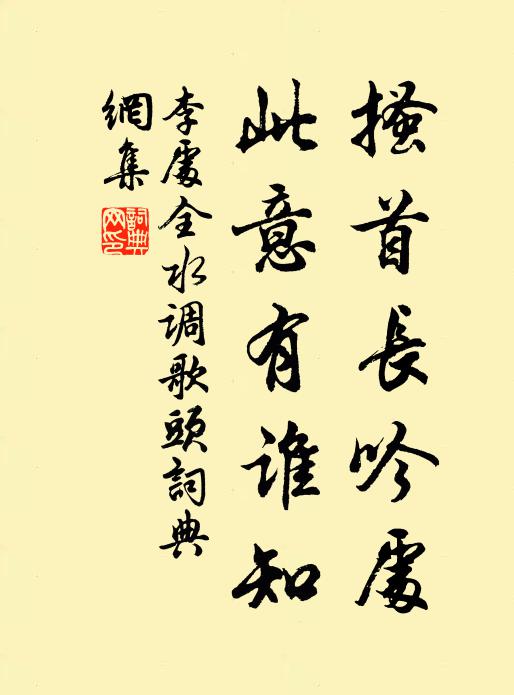 搔首長吟處
此意有誰知
李處全水调歌頭詞典
網集
詞典
网印